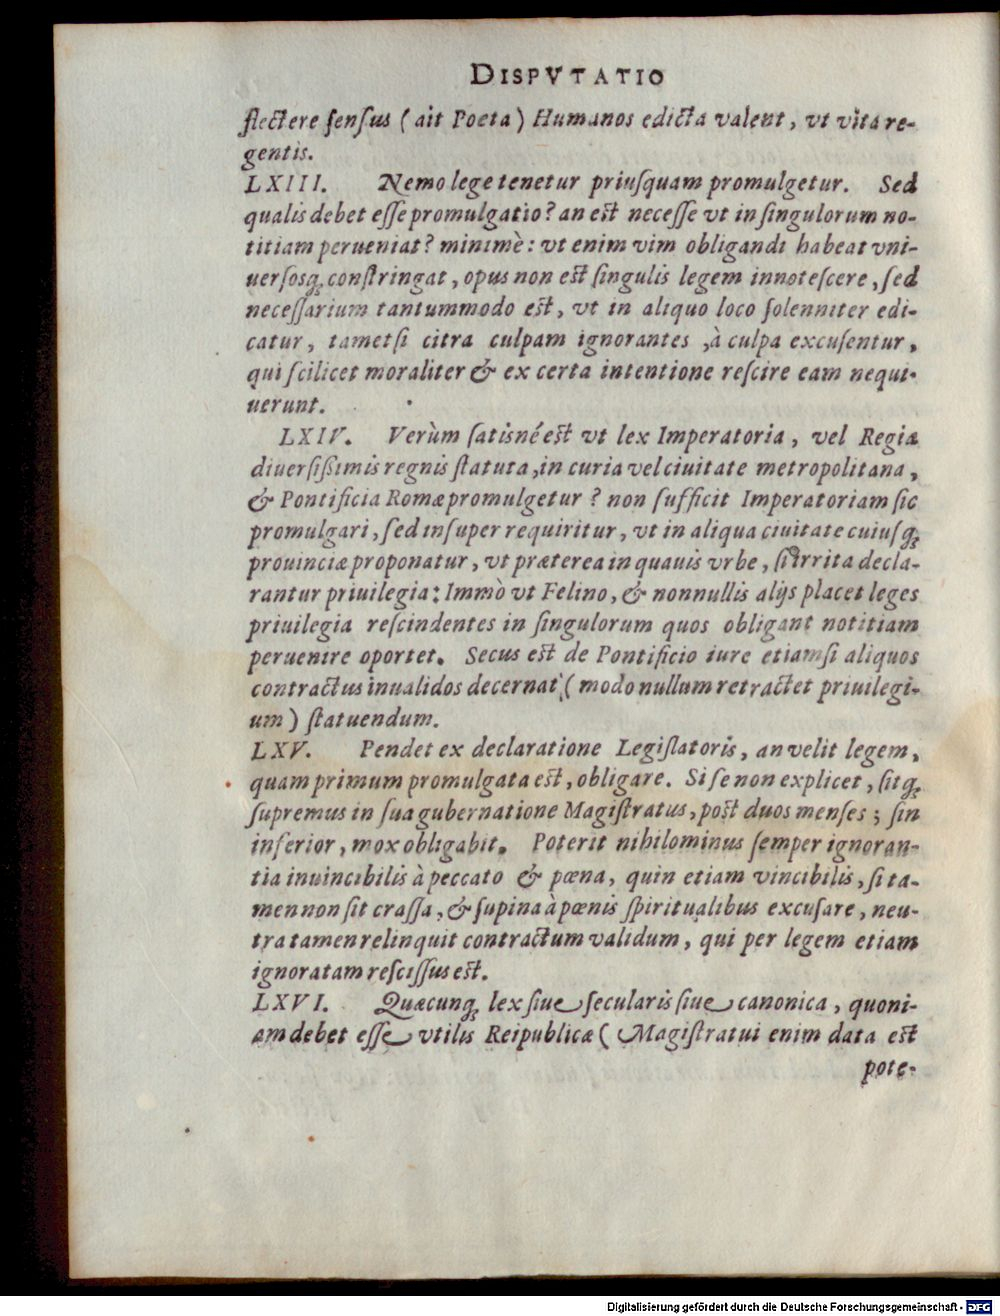 DISPVTATIO
flectere ſenſus (ait Poeta) Humanos edicta valent, vt vita re-
gentis.
LXIII. Nemo lege tenetur priuſquam promulgetur. Sed
qualis debet eſſe promulgatio? an eſt neceſſe vt in ſingulorum no-
titiam perueniat? minimè: vt enim vim obligandi habeat vni-
uerſosq́; conſtringat, opus non eſt ſingulis legem innoteſcere, ſed
neceſſarium tantummodo eſt, vt in aliquo loco ſolenniter edi-
catur, tametſi citra culpam ignorantes, à culpa excuſentur,
qui ſcilicet moraliter & ex certa intentione reſcire eam nequi-
uerunt.
LXIV. Verùm ſatisné eſt vt lex Imperatoria, vel Regiæ
diuerſißimis regnis ſtatuta, in curia vel ciuitate metropolitana,
& Pontificia Romæ promulgetur? non ſufficit Imperatoriam ſic
promulgari, ſed inſuper requiritur, vt in aliqua ciuitate cuiuſq́;
prouinciæ proponatur, vt præterea in quauis vrbe, ſi irrita decla-
rantur priuilegia: Immò vt Felino, & nonnullis alijs placet leges
priuilegia reſcindentes in ſingulorum quos obligant notitiam
peruenire oportet. Secus eſt de Pontificio iure etiamſi aliquos
contractus inualidos decernat (modo nullum retractet priuilegi-
um) ſtatuendum.
LXV. Pendet ex declaratione Legiſlatoris, an velit legem,
quam primum promulgata eſt, obligare. Si ſe non explicet, ſitq́;
ſupremus in ſua gubernatione Magiſtratus, poſt duos menſes; ſin
inferior, mox obligabit. Poterit nihilominus ſemper ignoran-
tia inuincibilis à peccato & pœna, quin etiam vincibilis, ſi ta-
men non ſit craſſa, & ſupina à pœnis ſpiritualibus excuſare, neu-
tra tamen relinquit contractum validum, qui per legem etiam
ignoratam reſciſſus eſt.
LXVI. Quæcunq́; lex ſiue ſecularis ſiue canonica, quoni-
am debet eſſe vtilis Reipublicæ (Magiſtratui enim data eſt
pote-
Digitalisierung gefördert durch die Deutsche Forschungsgemeinschaft - DFG